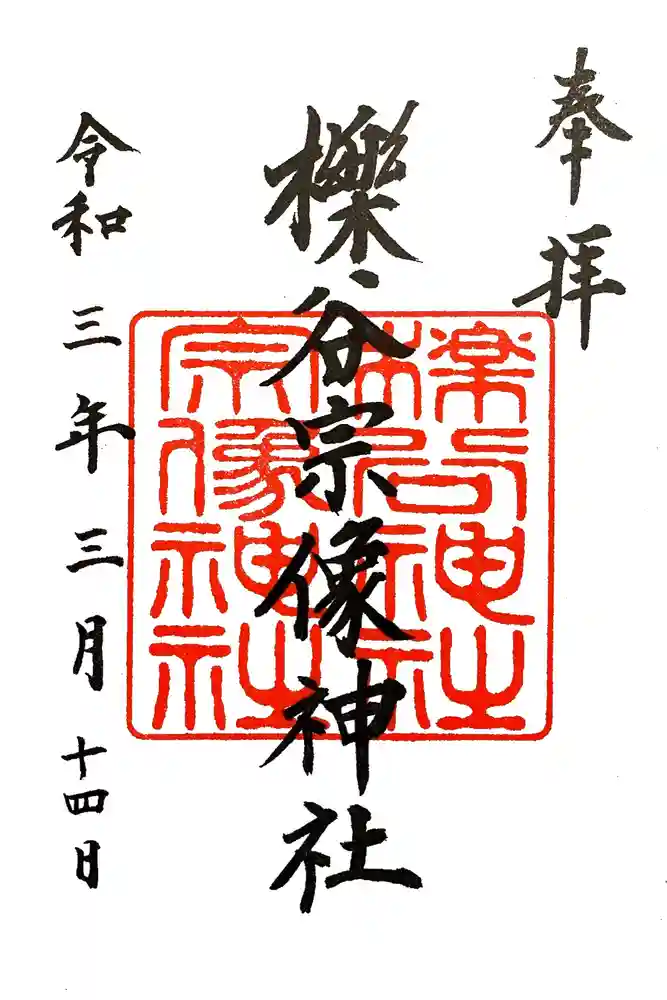 奉拝
櫟谷宗像神社
令和三年三月十四日
宗像神社